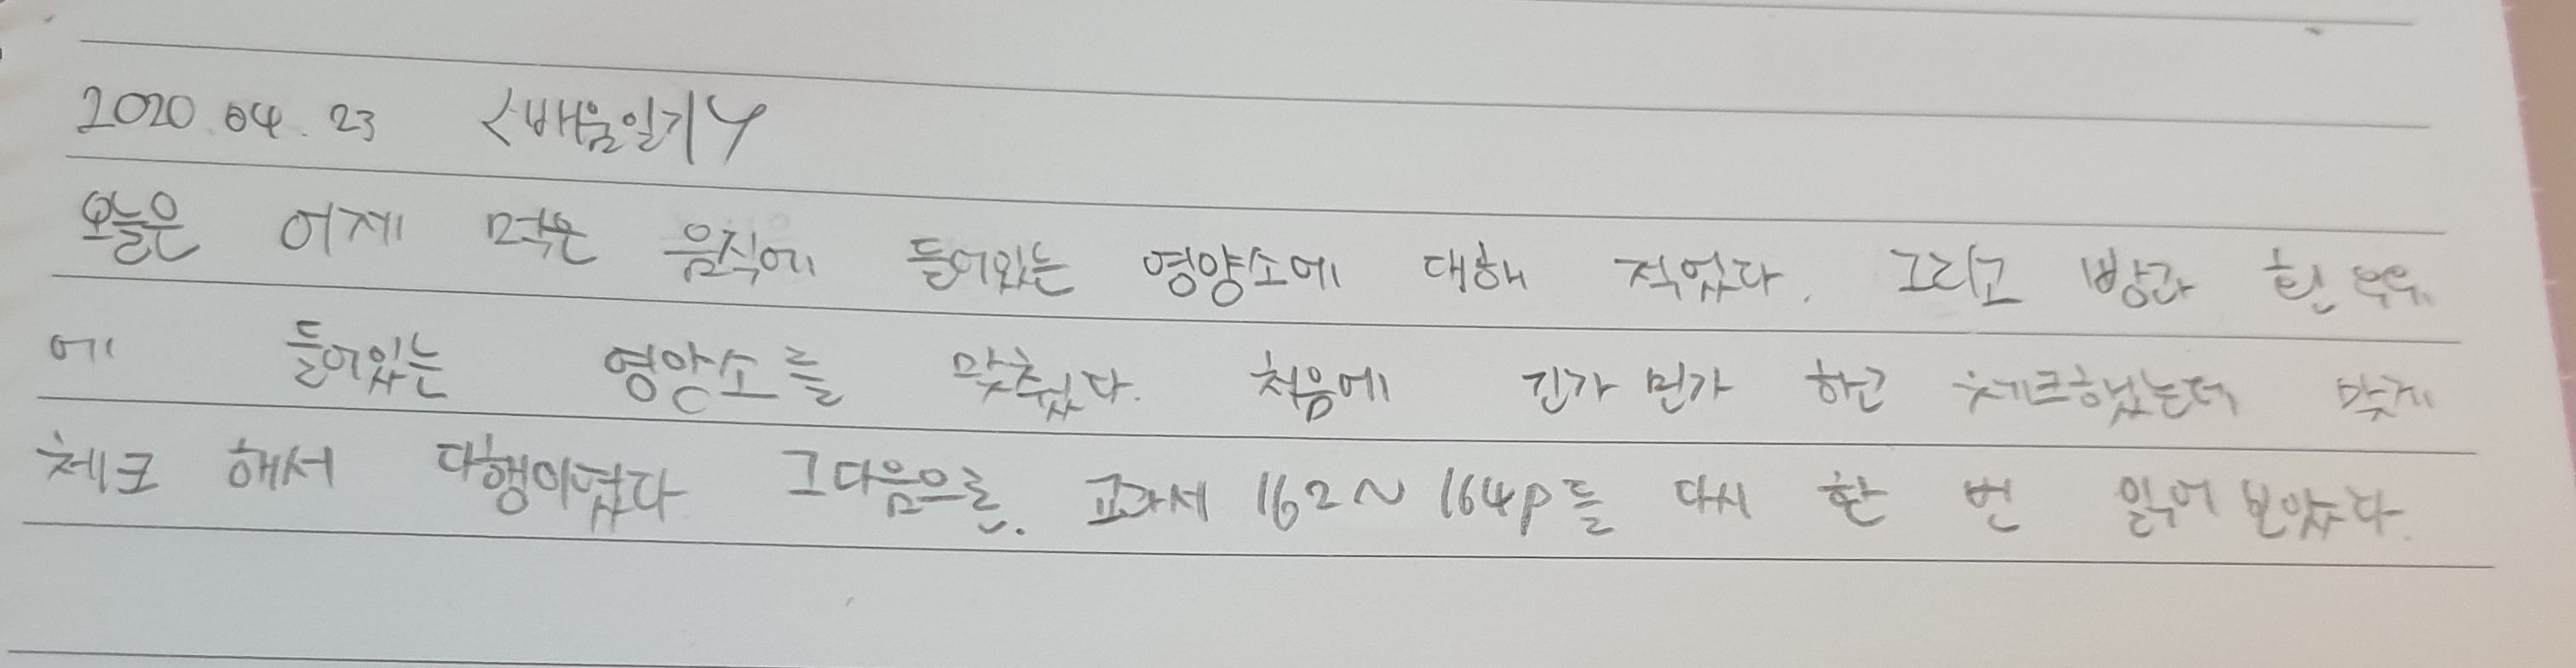 2020.04.23 <배움일기>
오늘은 어제 먹은 음식에 들어있는 영양소에 대해 적었다. 그리고 빵과 흰 우유
에 들어있는 영양소를 맞췄다. 처음에 긴가 민가 하고 체크했는데 맞게
체크 해서 다행이였다 그다음으론. 교과서 162~164p를 다시 한 번 읽어 보았다.